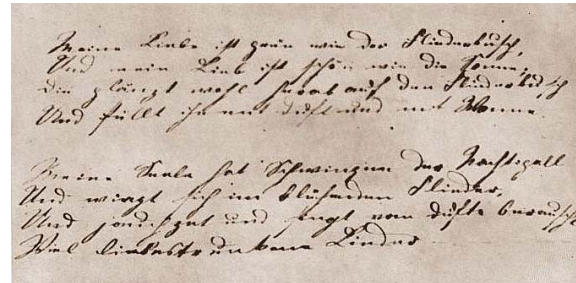 Meine Liebe ist grün wie der Fliederbusch,
Und mein Lieb ist schön wie die Sonne;
Die glänzt wohl herab auf den Fliederbusch
Und füllt ihn mit Duft und mit Wonne.
Meine Seele hat Schwingen der Nachtigall
Und wiegt sich im blühenden Flieder,
Und jauchzet und singt vom Dufte berauscht
Viel liebestrunkene Lieder